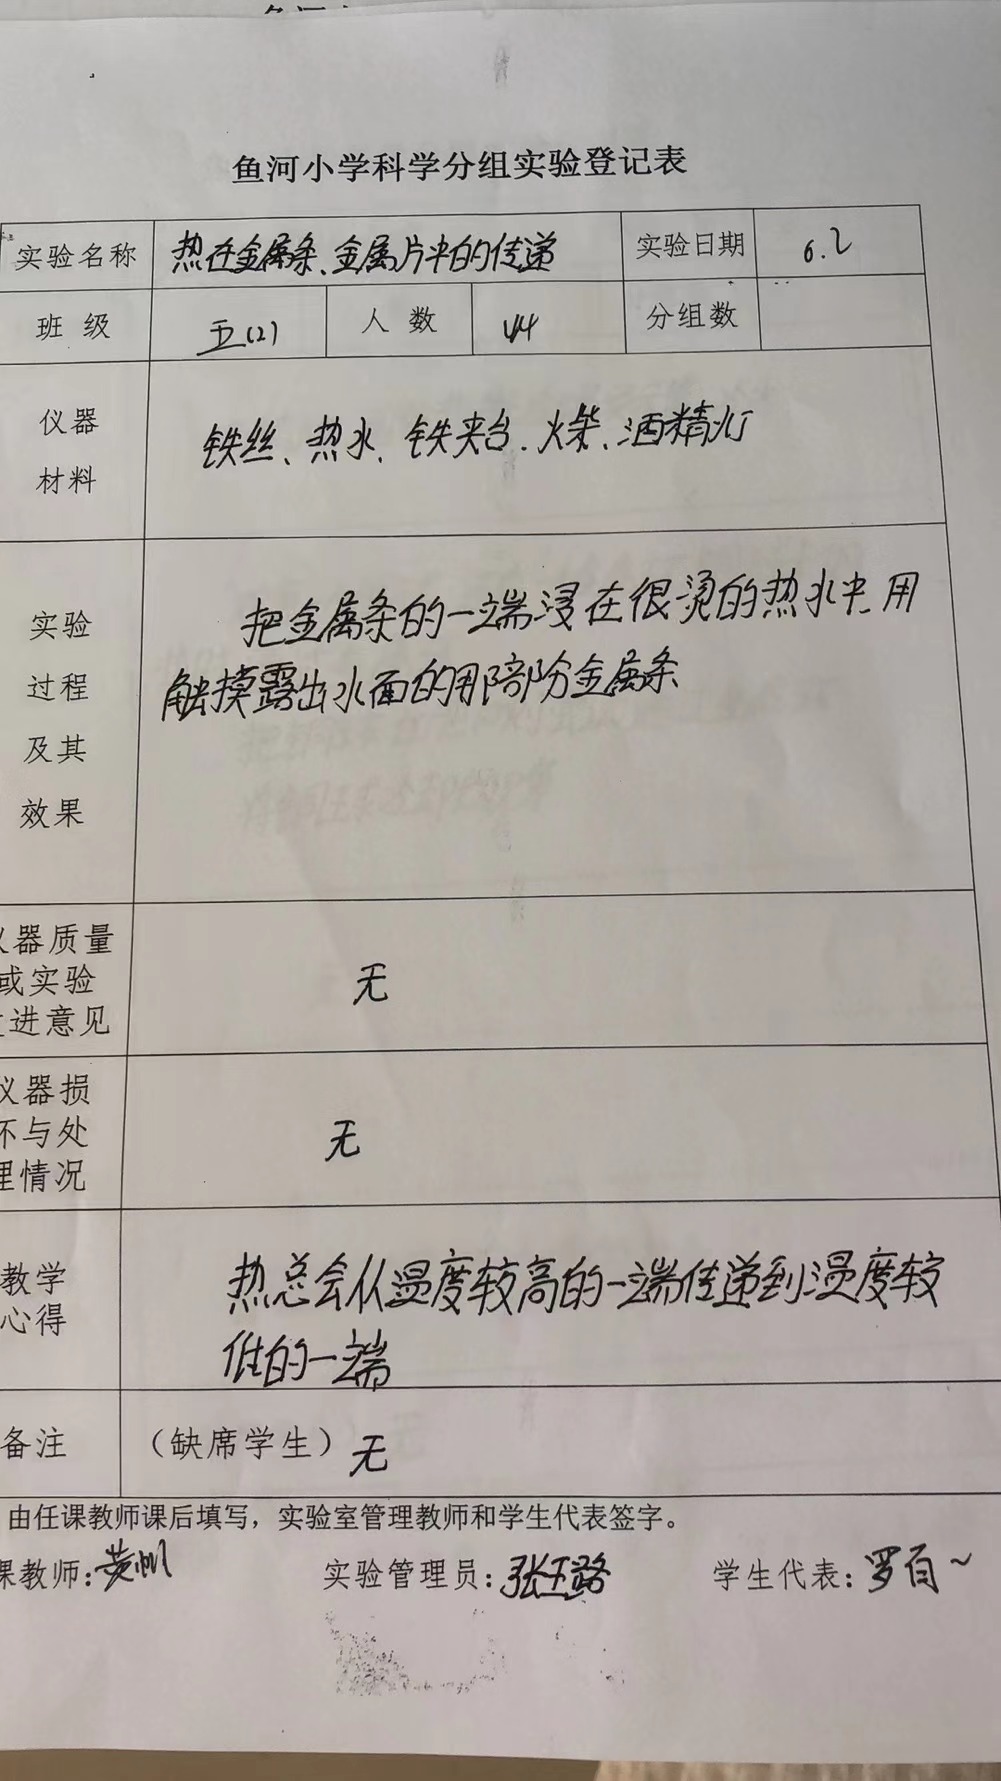 鱼河小学科学分组实验登记表
实验名称 热在金属条、金属片中的传递 实验日期 6.2
班 级 五(2) 人 数 44 分组数
仪器 铁丝、热水、铁夹台、火柴、酒精灯
材料
实验 把金属条的一端浸在很烫的热水中,用
过程 触摸露出水面的那部分金属条
及其
效果
器质量
或实验 无
进意见
仪器损
坏与处 无
理情况
教学 热总会从温度较高的一端传递到温度较
心得 低的一端
备注 (缺席学生) 无
由任课教师课后填写,实验室管理教师和学生代表签字。
课教师: 黄帆 实验管理员: 张玉路 学生代表: 罗百